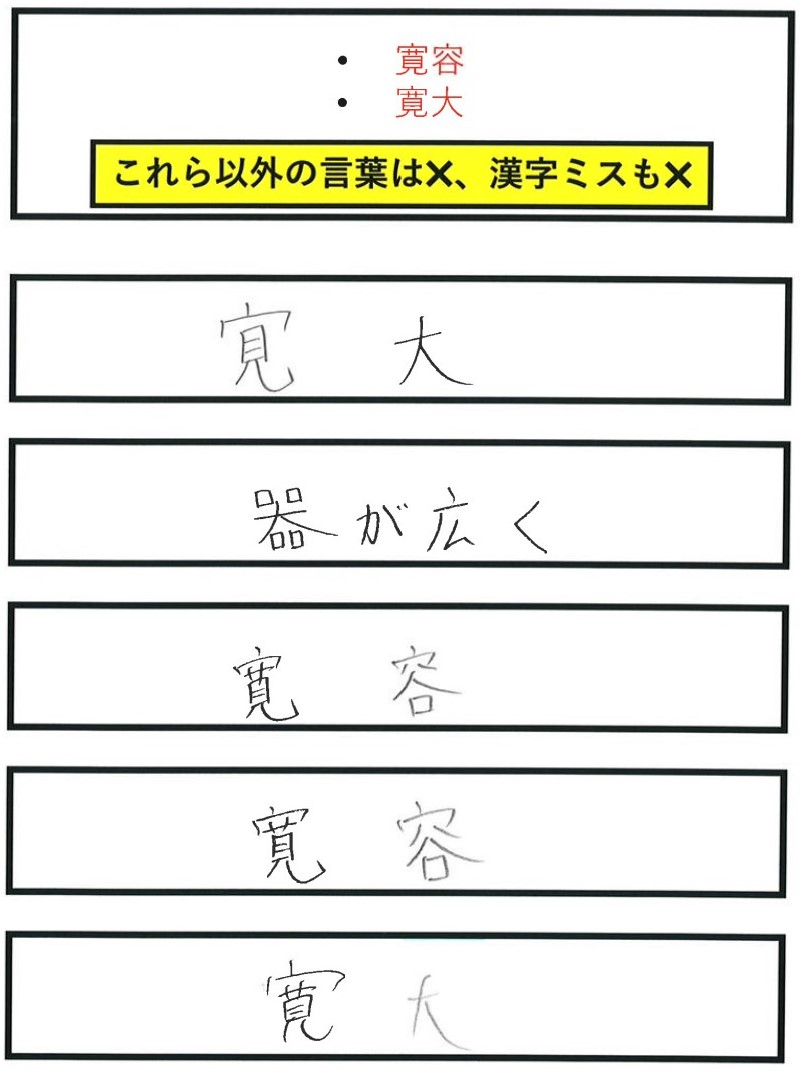 • 寛容
• 寛大
これら以外の言葉は×、漢字ミスも×
大
器が広く
寛容
寛容
寛大